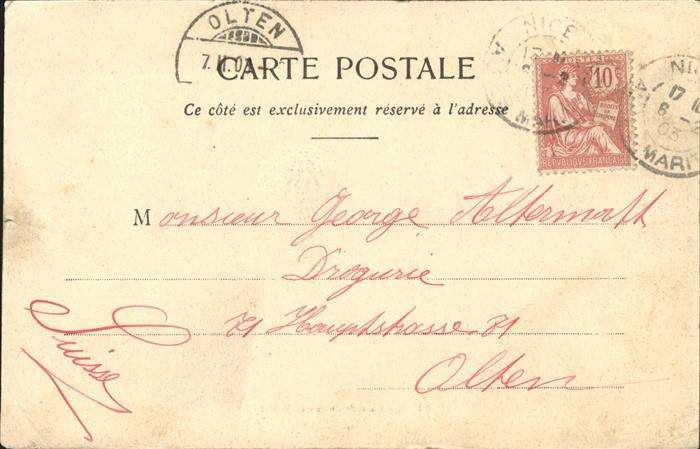 OLTEN
7.II.0
CARTE POSTALE
Ce côté est exclusivement réservé à l'adresse
NICE
MARI
10
POSTES
DROITS DE L'HOMME
RÉPUBLIQUE FRANÇAISE
NI
17
6
03
MARI
Monsieur George Altermatt
Droguerie
71 Hauptstrasse 71
Olten
Suisse